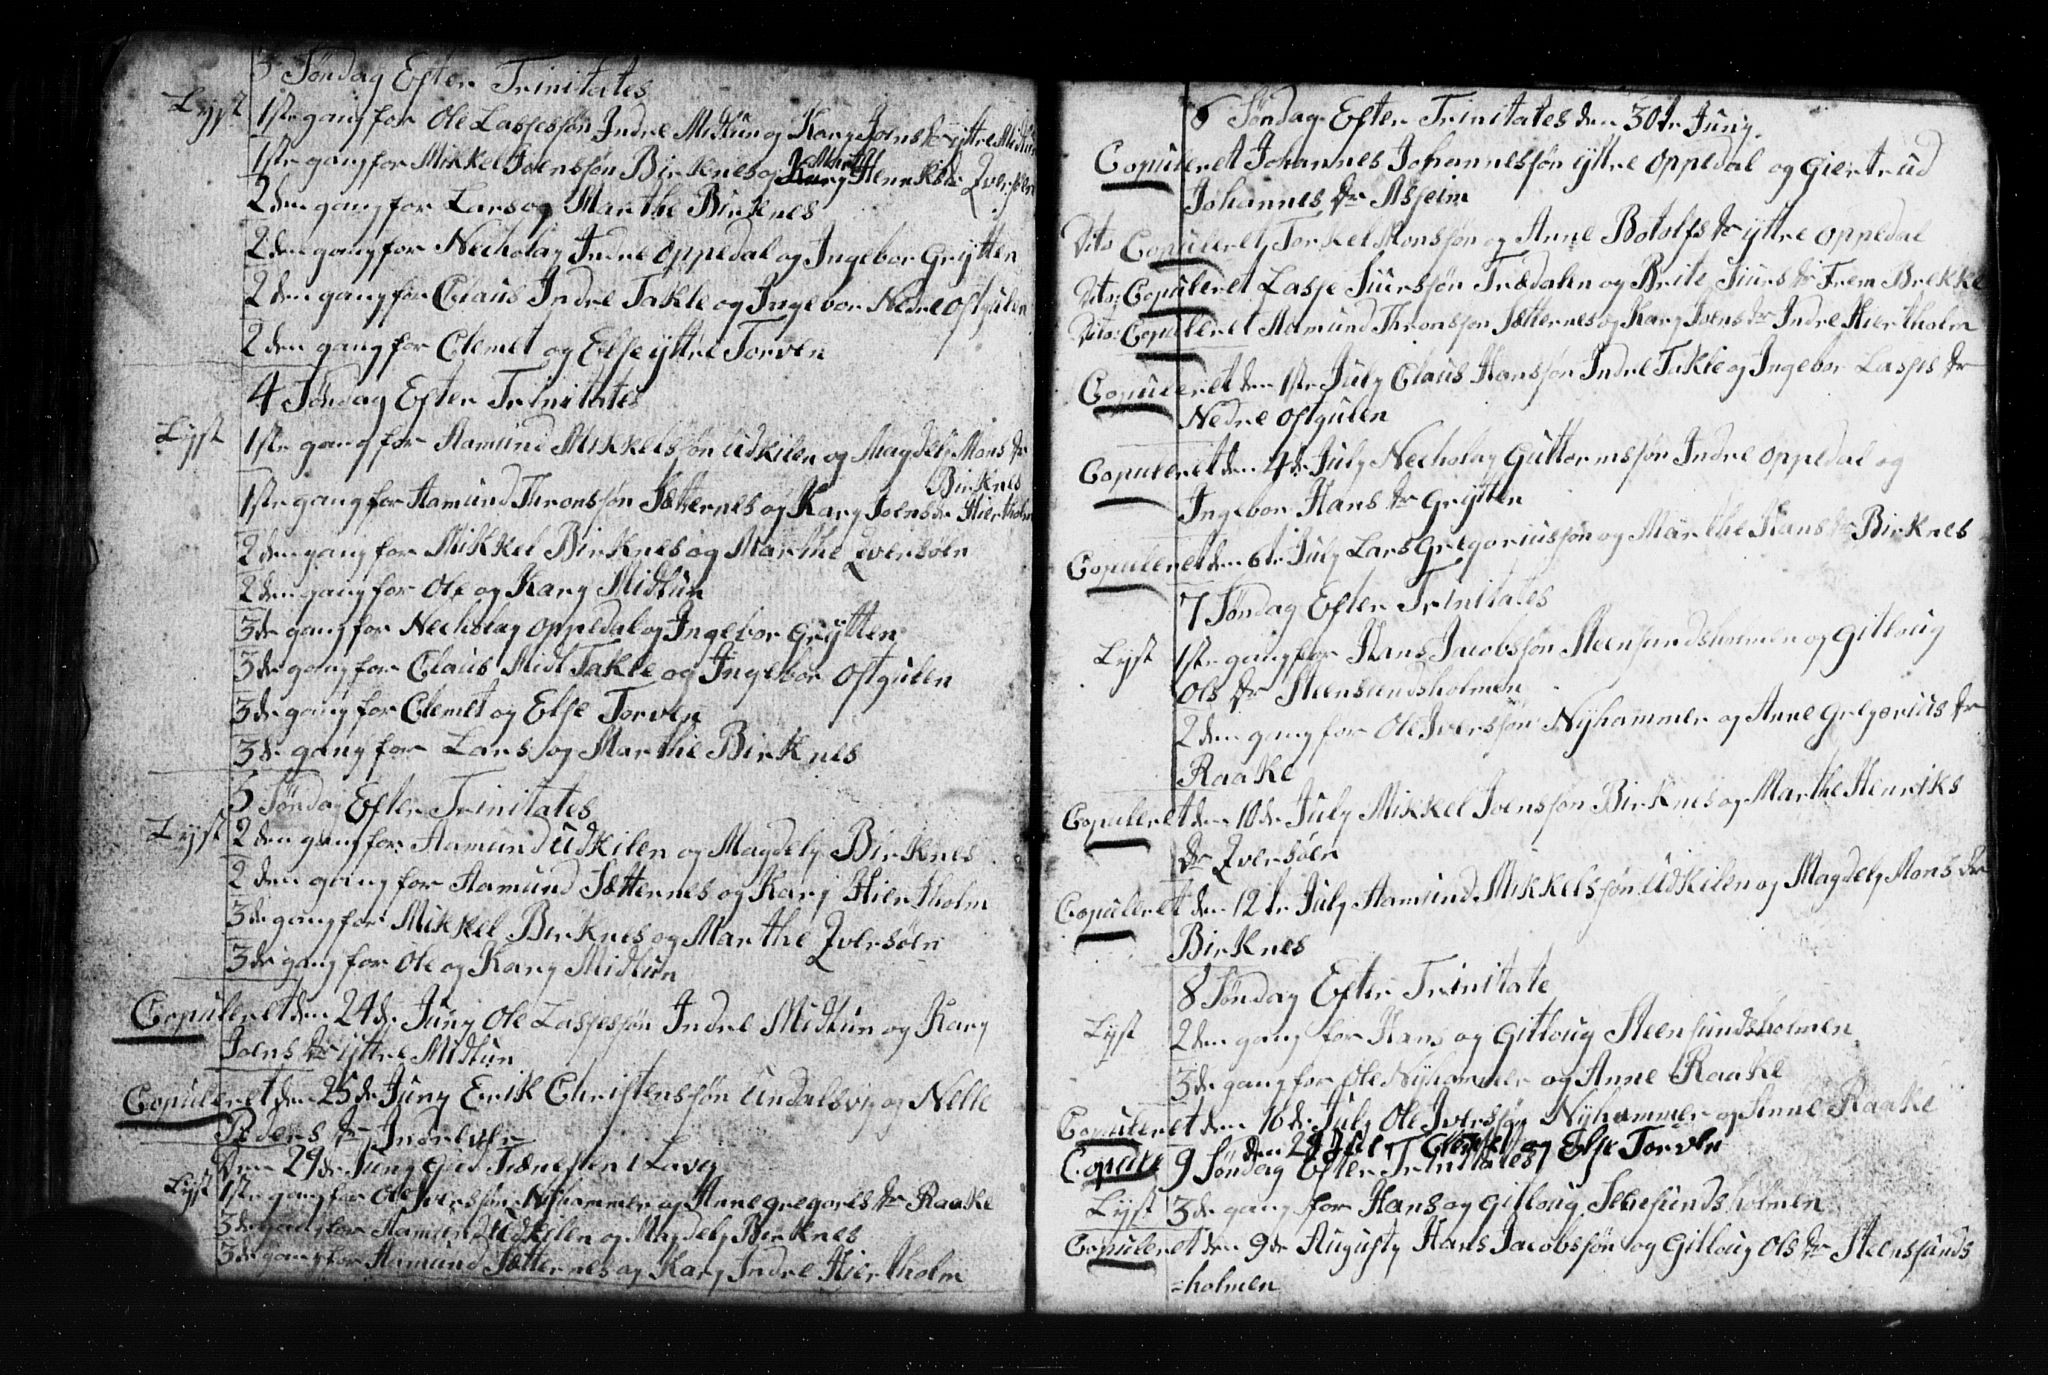 3 Søndag Efter Trinitates
Lyst 1ste gang for Ole Lassessøn Indre Midtun og Kary Joens dr yttre Midtun
1ste gang for Mikkel Joensøn Birknes og Marthe Henriks dr Qversøen
2den gang for Lars og Marthe Birknes
2den gang for Necholay Indre Oppedal og Ingebor Grytten
2den gang for Claus Indre Takle og Ingebor Nedre Ostgulen
2den gang for Clemet og Else yttre Torven
4 Søndag Efter Trinitates
Lyst 1ste gang for Aamund Mikkelssøn Udkilen og Magdely Mons dr
Birknes
1ste gang for Aamund Thronssøn Sætternes og Kary Joens dr Hiertholm
2den gang for Mikkel Birknes og Marthe Qversøen
2den gang for Ole og Kary Midtun
3de gang for Necholay Oppedal og Ingebor Grytten
3de gang for Claus Midt Takle og Ingebor Ostgulen
3de gang for Clemet og Else Torven
3de gang for Lars og Marthe Birknes
5 Søndag Efter Trinitates
Lyst 2den gang for Aamund Udkilen og Magdely Birknes
2den gang for Aamund Sætternes og Kary Hiertholm
3de gang for Mikkel Birknes og Marthe Qversøen
3de gang for Ole og Kary Midtun
Copuleret den 24de Juny Ole Lassessøn Indre Midtun og Kary
Joens dr yttre Midtun
Copuleret den 25de Juny Erik Christenssøn Undalsvig og Nelle
Peders dr
Den 29de Juny Tienesten i Lavig
Lyst 1ste gang for Ole Iverssøn Nyhammer og Anne Gregores dr Raake
3de gang for Aamund Udkilen og Magdely Birknes
3de gang for Aamund Sætternes og Kary Indre Hiertholm
6 Søndag Efter Trinitates den 30te Juny
Copuleret Johannes Johannessøn yttre Oppedal og Giertrud
Johannes dr Asjeim
Dito Copuleret Torkel Monssøn og Anne Botolfs dr yttre Oppedal
Dito: Copuleret Lasse Siurssøn Trædalen og Brite Siurs dr Frem Brekke
Dito: Copuleret Aamund Thronssøn Sætternes og Kary Joens dr Indre Hiertholm
Copuleret den 1ste July Claus Hanssøn Indre Takle og Ingebor Lasses dr
Nedre Ostgulen
Copuleret den 4de July Necholay Guttormssøn Indre Oppedal og
Ingebor Hans dr Grytten
Copuleret den 6te July Lars Gregoriussøn og Marthe Hans dr Birknes
7 Søndag Efter Trinitates
Lyst 1ste gang for Hans Jacobssøn Steensundsholmen og Gitloug
Ols dr Steensundsholmen
2den gang for Ole Iverssøn Nyhammer og Anne Gregorius dr
Raake
Copuleret den 10de July Mikkel Joenssøn Birknes og Marthe Henriks
dr Qversøen
Copuleret den 12te July Aamund Mikkelssøn Udkilen og Magdely Mons dr
Birknes
8 Søndag Efter Trinitate
Lyst 2den gang for Hans og Gitloug Steensundsholmen
3de gang for Ole Nyhammer og Anne Raake
Copuleret den 16de July Ole Iverssøn Nyhammer og Anne Raake
Copule den 21 Jul Clemet og Else Torven
9 Søndag Efter Trinitates
Lyst 3de gang for Hans og Gitloug Steesundsholmen
Copuleret den 9de Augusty Hans Jacobssøn og Gitloug Ols dr Steenssunds
=holmen